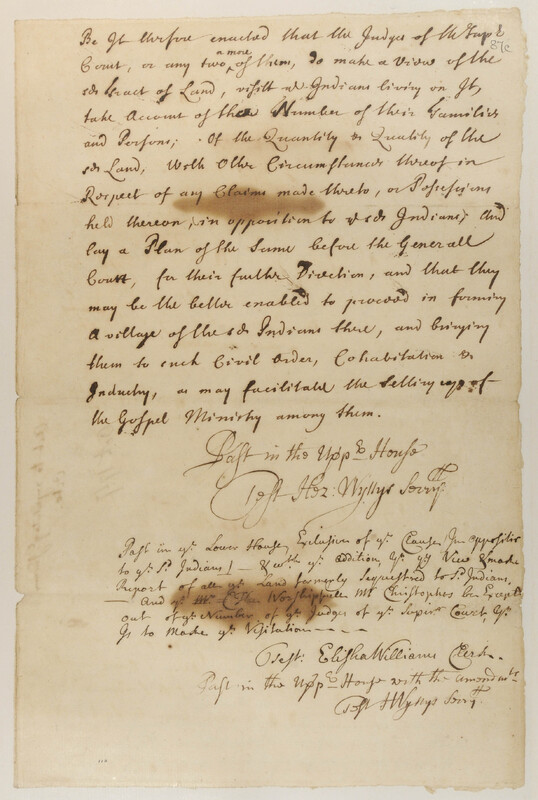 Be It therfore enacted that the Judges of the Supr
87c
Court, or any two a more of them, do make a View of the
sd Tract of Land, visitt ye Indians living on It,
take Account of the Number of their Families
and Persons; Of the Quantity & Quality of the
sd Land, With Other Circumstances thereof in
Respect of any Claims made thereto, or Possessions
held thereon, in opposition to ye sd Indians; And
lay a Plan of the Same before the Generall
Court, for their further Direction, and that they
may be the better enabled to proceed in forming
a village of the sd Indians there, and bringing
them to such Civil Order, Cohabitation &
Industry, as may facilitate the setting up of
the Gospel Ministry among them.
Past in the Uppr House
Test Hez: Wyllys Secry
Past in ye Lower House, Exclusion of ye Clause In oppositio
to ye sd Indians! - & with ye addition, yt yy View & make
Report of all ye Land formerly sequestred to sd Indians,
And yt The Worshipfull Mr Christophers be Except
out of ye Number of ye Judges of ye Supr Court, yt
Is to Make ye Visitation
Test. Elisha Williams Clerk.
Past in the Uppr House with the amendmts
Test H Wyllys Secry